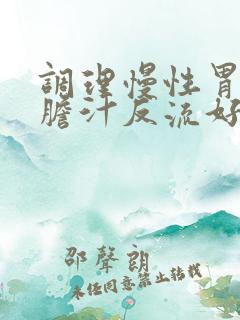 調理慢性胃
膽汁反流好
邵聲朗
未任同意禁止转载